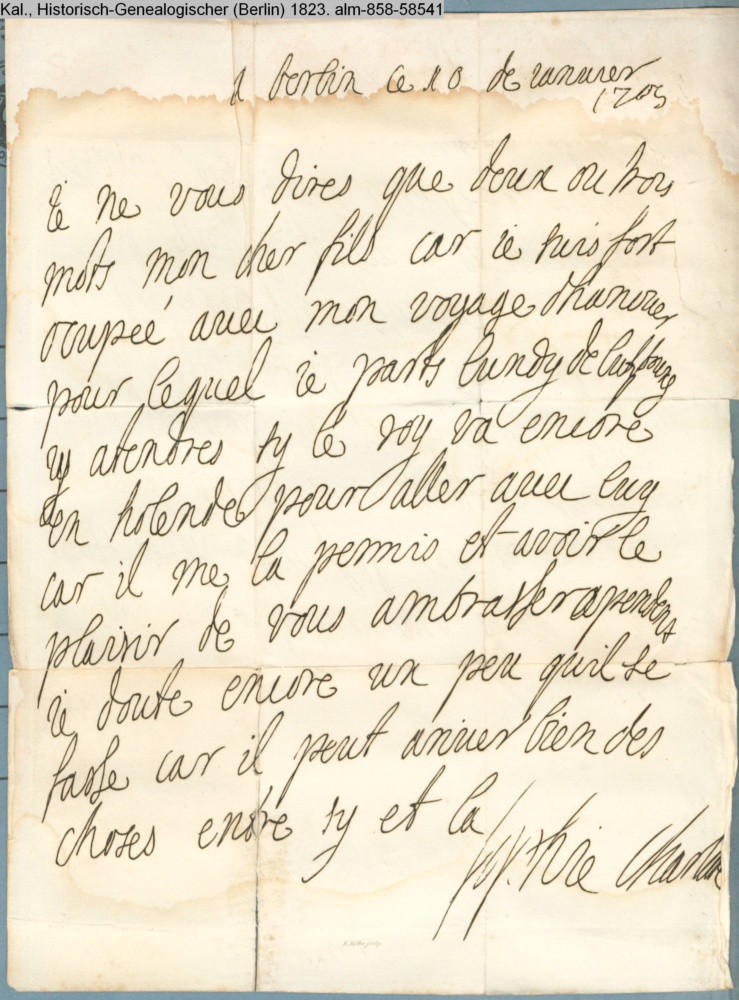 Kal., Historisch-Genealogischer (Berlin) 1823. alm-858-58541
a berlin ce 10 de ianuier
1705
ie ne vous dires que deux ou trois
mots mon cher fils car ie suis fort
ocupeé auec mon voyage dhanover
pour lequel ie parts lundy de
atendres sy le roy va encore
en holende pour aller auec luy
car il me la permis et avoir le
plaisir de vous ambrasser apendent
ie doute encore un peu quil se
fasse car il peut ariuer bien des
choses entre sy et la
Sophie Charlotte